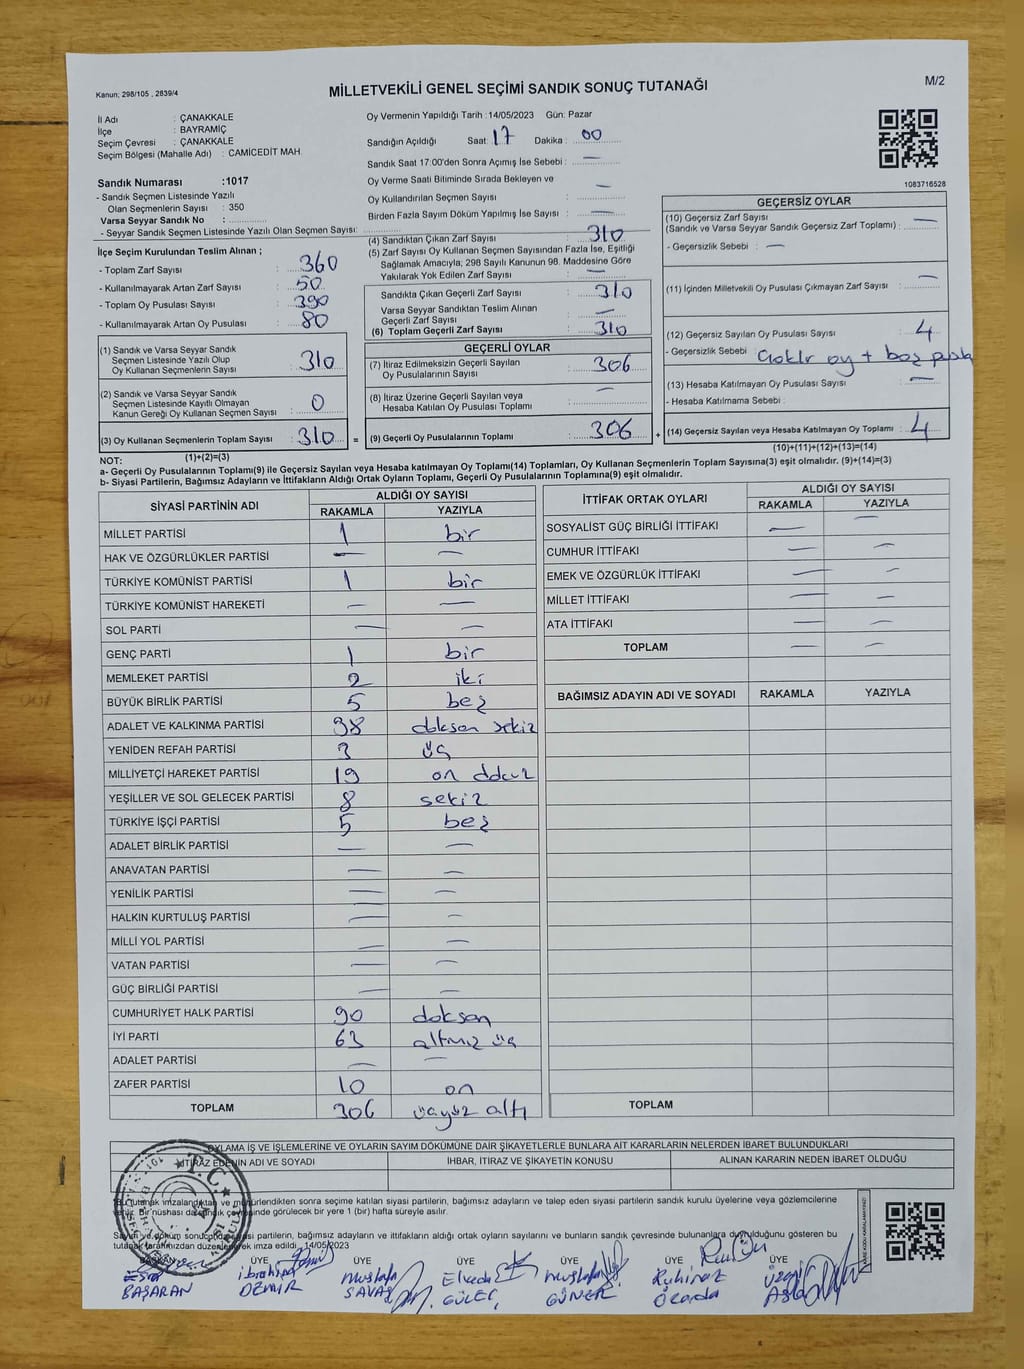 Kanun; 298/105 , 2839/4
MİLLETVEKİLİ GENEL SEÇİMİ SANDIK SONUÇ TUTANAĞI
M/2
İl Adı : ÇANAKKALE
İlçe : BAYRAMİÇ
Seçim Çevresi : ÇANAKKALE
Seçim Bölgesi (Mahalle Adı) : CAMİCEDİT MAH.
Sandık Numarası :1017
- Sandık Seçmen Listesinde Yazılı
Olan Seçmenlerin Sayısı : 350
Varsa Seyyar Sandık No :
- Seyyar Sandık Seçmen Listesinde Yazılı Olan Seçmen Sayısı:
Oy Vermenin Yapıldığı Tarih :14/05/2023 Gün: Pazar
Sandığın Açıldığı Saat: 17 Dakika : 00
Sandık Saat 17:00'den Sonra Açımış İse Sebebi : —
Oy Verme Saati Bitiminde Sırada Bekleyen ve
Oy Kullandırılan Seçmen Sayısı : —
Birden Fazla Sayım Döküm Yapılmış İse Sayısı : —
1083716528
İlçe Seçim Kurulundan Teslim Alınan ;
- Toplam Zarf Sayısı : 360
- Kullanılmayarak Artan Zarf Sayısı : 50
- Toplam Oy Pusulası Sayısı : 390
- Kullanılmayarak Artan Oy Pusulası : 80
(1) Sandık ve Varsa Seyyar Sandık
Seçmen Listesinde Yazılı Olup
Oy Kullanan Seçmenlerin Sayısı : 310
(2) Sandık ve Varsa Seyyar Sandık
Seçmen Listesinde Kayıtlı Olmayan
Kanun Gereği Oy Kullanan Seçmen Sayısı : 0
(3) Oy Kullanan Seçmenlerin Toplam Sayısı : 310
(1)+(2)=(3)
(4) Sandıktan Çıkan Zarf Sayısı : 310
(5) Zarf Sayısı Oy Kullanan Seçmen Sayısından Fazla İse, Eşitliği
Sağlamak Amacıyla; 298 Sayılı Kanunun 98. Maddesine Göre
Yakılarak Yok Edilen Zarf Sayısı : —
Sandıkta Çıkan Geçerli Zarf Sayısı : 310
Varsa Seyyar Sandıktan Teslim Alınan
Geçerli Zarf Sayısı : —
(6) Toplam Geçerli Zarf Sayısı : 310
GEÇERLİ OYLAR
(7) İtiraz Edilmeksizin Geçerli Sayılan
Oy Pusulalarının Sayısı : 306
(8) İtiraz Üzerine Geçerli Sayılan veya
Hesaba Katılan Oy Pusulası Toplamı : —
= (9) Geçerli Oy Pusulalarının Toplamı : 306
GEÇERSİZ OYLAR
(10) Geçersiz Zarf Sayısı —
(Sandık ve Varsa Seyyar Sandık Geçersiz Zarf Toplamı) :
- Geçersizlik Sebebi : —
(11) İçinden Milletvekili Oy Pusulası Çıkmayan Zarf Sayısı : —
(12) Geçersiz Sayılan Oy Pusulası Sayısı : 4
- Geçersizlik Sebebi : oy + boş
(13) Hesaba Katılmayan Oy Pusulası Sayısı : —
- Hesaba Katılmama Sebebi :
+ (14) Geçersiz Sayılan veya Hesaba Katılmayan Oy Toplamı : 4
(10)+(11)+(12)+(13)=(14)
NOT:
a- Geçerli Oy Pusulalarının Toplamı(9) ile Geçersiz Sayılan veya Hesaba katılmayan Oy Toplamı(14) Toplamları, Oy Kullanan Seçmenlerin Toplam Sayısına(3) eşit olmalıdır. (9)+(14)=(3)
b- Siyasi Partilerin, Bağımsız Adayların ve İttifakların Aldığı Ortak Oyların Toplamı, Geçerli Oy Pusulalarının Toplamına(9) eşit olmalıdır.
SİYASİ PARTİNİN ADI ALDIĞI OY SAYISI
RAKAMLA YAZIYLA
MİLLET PARTİSİ 1 bir
HAK VE ÖZGÜRLÜKLER PARTİSİ — —
TÜRKİYE KOMÜNİST PARTİSİ 1 bir
TÜRKİYE KOMÜNİST HAREKETİ — —
SOL PARTİ — —
GENÇ PARTİ 1 bir
MEMLEKET PARTİSİ 2 iki
BÜYÜK BİRLİK PARTİSİ 5 beş
ADALET VE KALKINMA PARTİSİ 98 doksan sekiz
YENİDEN REFAH PARTİSİ 3 üç
MİLLİYETÇİ HAREKET PARTİSİ 19 on dokuz
YEŞİLLER VE SOL GELECEK PARTİSİ 8 sekiz
TÜRKİYE İŞÇİ PARTİSİ 5 beş
ADALET BİRLİK PARTİSİ — —
ANAVATAN PARTİSİ — —
YENİLİK PARTİSİ — —
HALKIN KURTULUŞ PARTİSİ — —
MİLLİ YOL PARTİSİ — —
VATAN PARTİSİ — —
GÜÇ BİRLİĞİ PARTİSİ — —
CUMHURİYET HALK PARTİSİ 90 doksan
İYİ PARTİ 63 altmış üç
ADALET PARTİSİ — —
ZAFER PARTİSİ 10 on
TOPLAM 306 üçyüz altı
İTTİFAK ORTAK OYLARI ALDIĞI OY SAYISI
RAKAMLA YAZIYLA
SOSYALİST GÜÇ BİRLİĞİ İTTİFAKI — —
CUMHUR İTTİFAKI — —
EMEK VE ÖZGÜRLÜK İTTİFAKI — —
MİLLET İTTİFAKI — —
ATA İTTİFAKI — —
TOPLAM — —
BAĞIMSIZ ADAYIN ADI VE SOYADI RAKAMLA YAZIYLA
TOPLAM
OYLAMA İŞ VE İŞLEMLERİNE VE OYLARIN SAYIM DÖKÜMÜNE DAİR ŞİKAYETLERLE BUNLARA AİT KARARLARIN NELERDEN İBARET BULUNDUKLARI
İTİRAZ EDENİN ADI VE SOYADI İHBAR, İTİRAZ VE ŞİKAYETİN KONUSU ALINAN KARARIN NEDEN İBARET OLDUĞU
T.C.
İşbu tutanak imzalandıktan ve mühürlendikten sonra seçime katılan siyasi partilerin, bağımsız adayların ve talep eden siyasi partilerin sandık kurulu üyelerine veya gözlemcilerine
verilir. Bir nüshası da sandık çevresinde görülecek bir yere 1 (bir) hafta süreyle asılır.
Sayım ve döküm sonucunda siyasi partilerin, bağımsız adayların ve ittifakların aldığı ortak oyların sayılarını ve bunların sandık çevresinde bulunanlara duyurulduğunu gösteren bu
tutanak tarafımızdan düzenlenerek imza edildi. 14/05/2023
BAŞKAN ÜYE ÜYE ÜYE ÜYE ÜYE ÜYE
Esra İbrahim Mustafa Elveda Mustafa Ruhinaz
BAŞARAN DEMİR SAVAŞ GÜLEÇ GÜNER